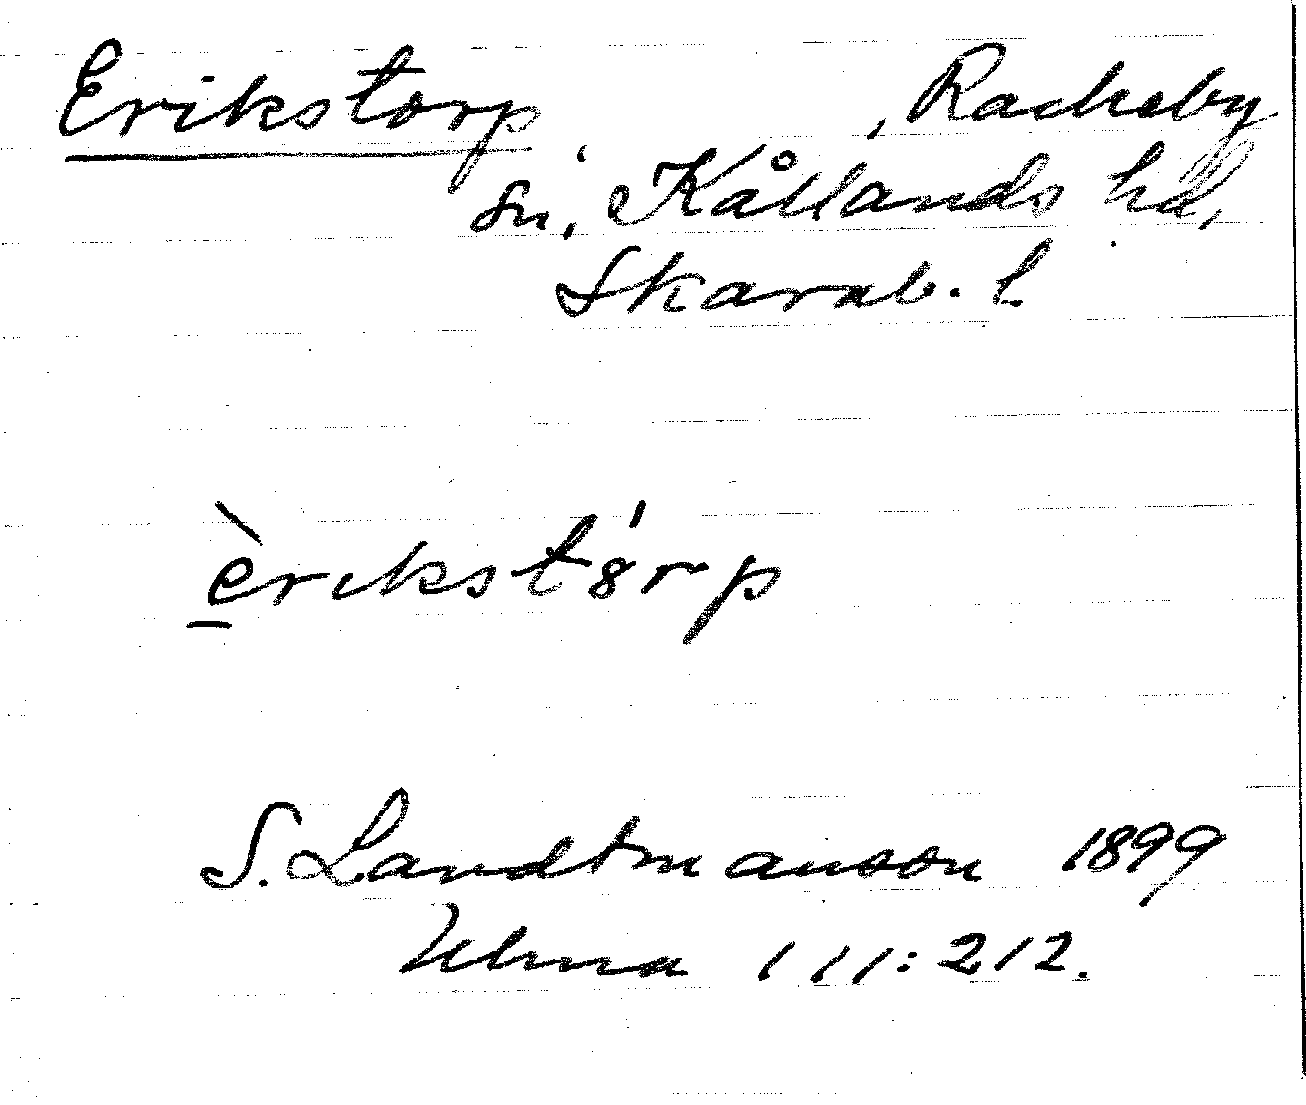 Erikstorp , Rackeby
sn, Kållands hd,
Skarab. l.
èrikstór̄p
S. Landtmanson 1899
Ulma 111:212.